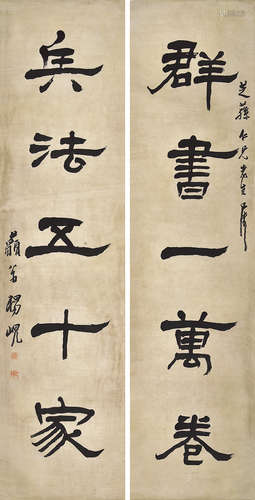 群書一萬卷
芝蓀仁兄
兵法五十家
藐翁楊峴